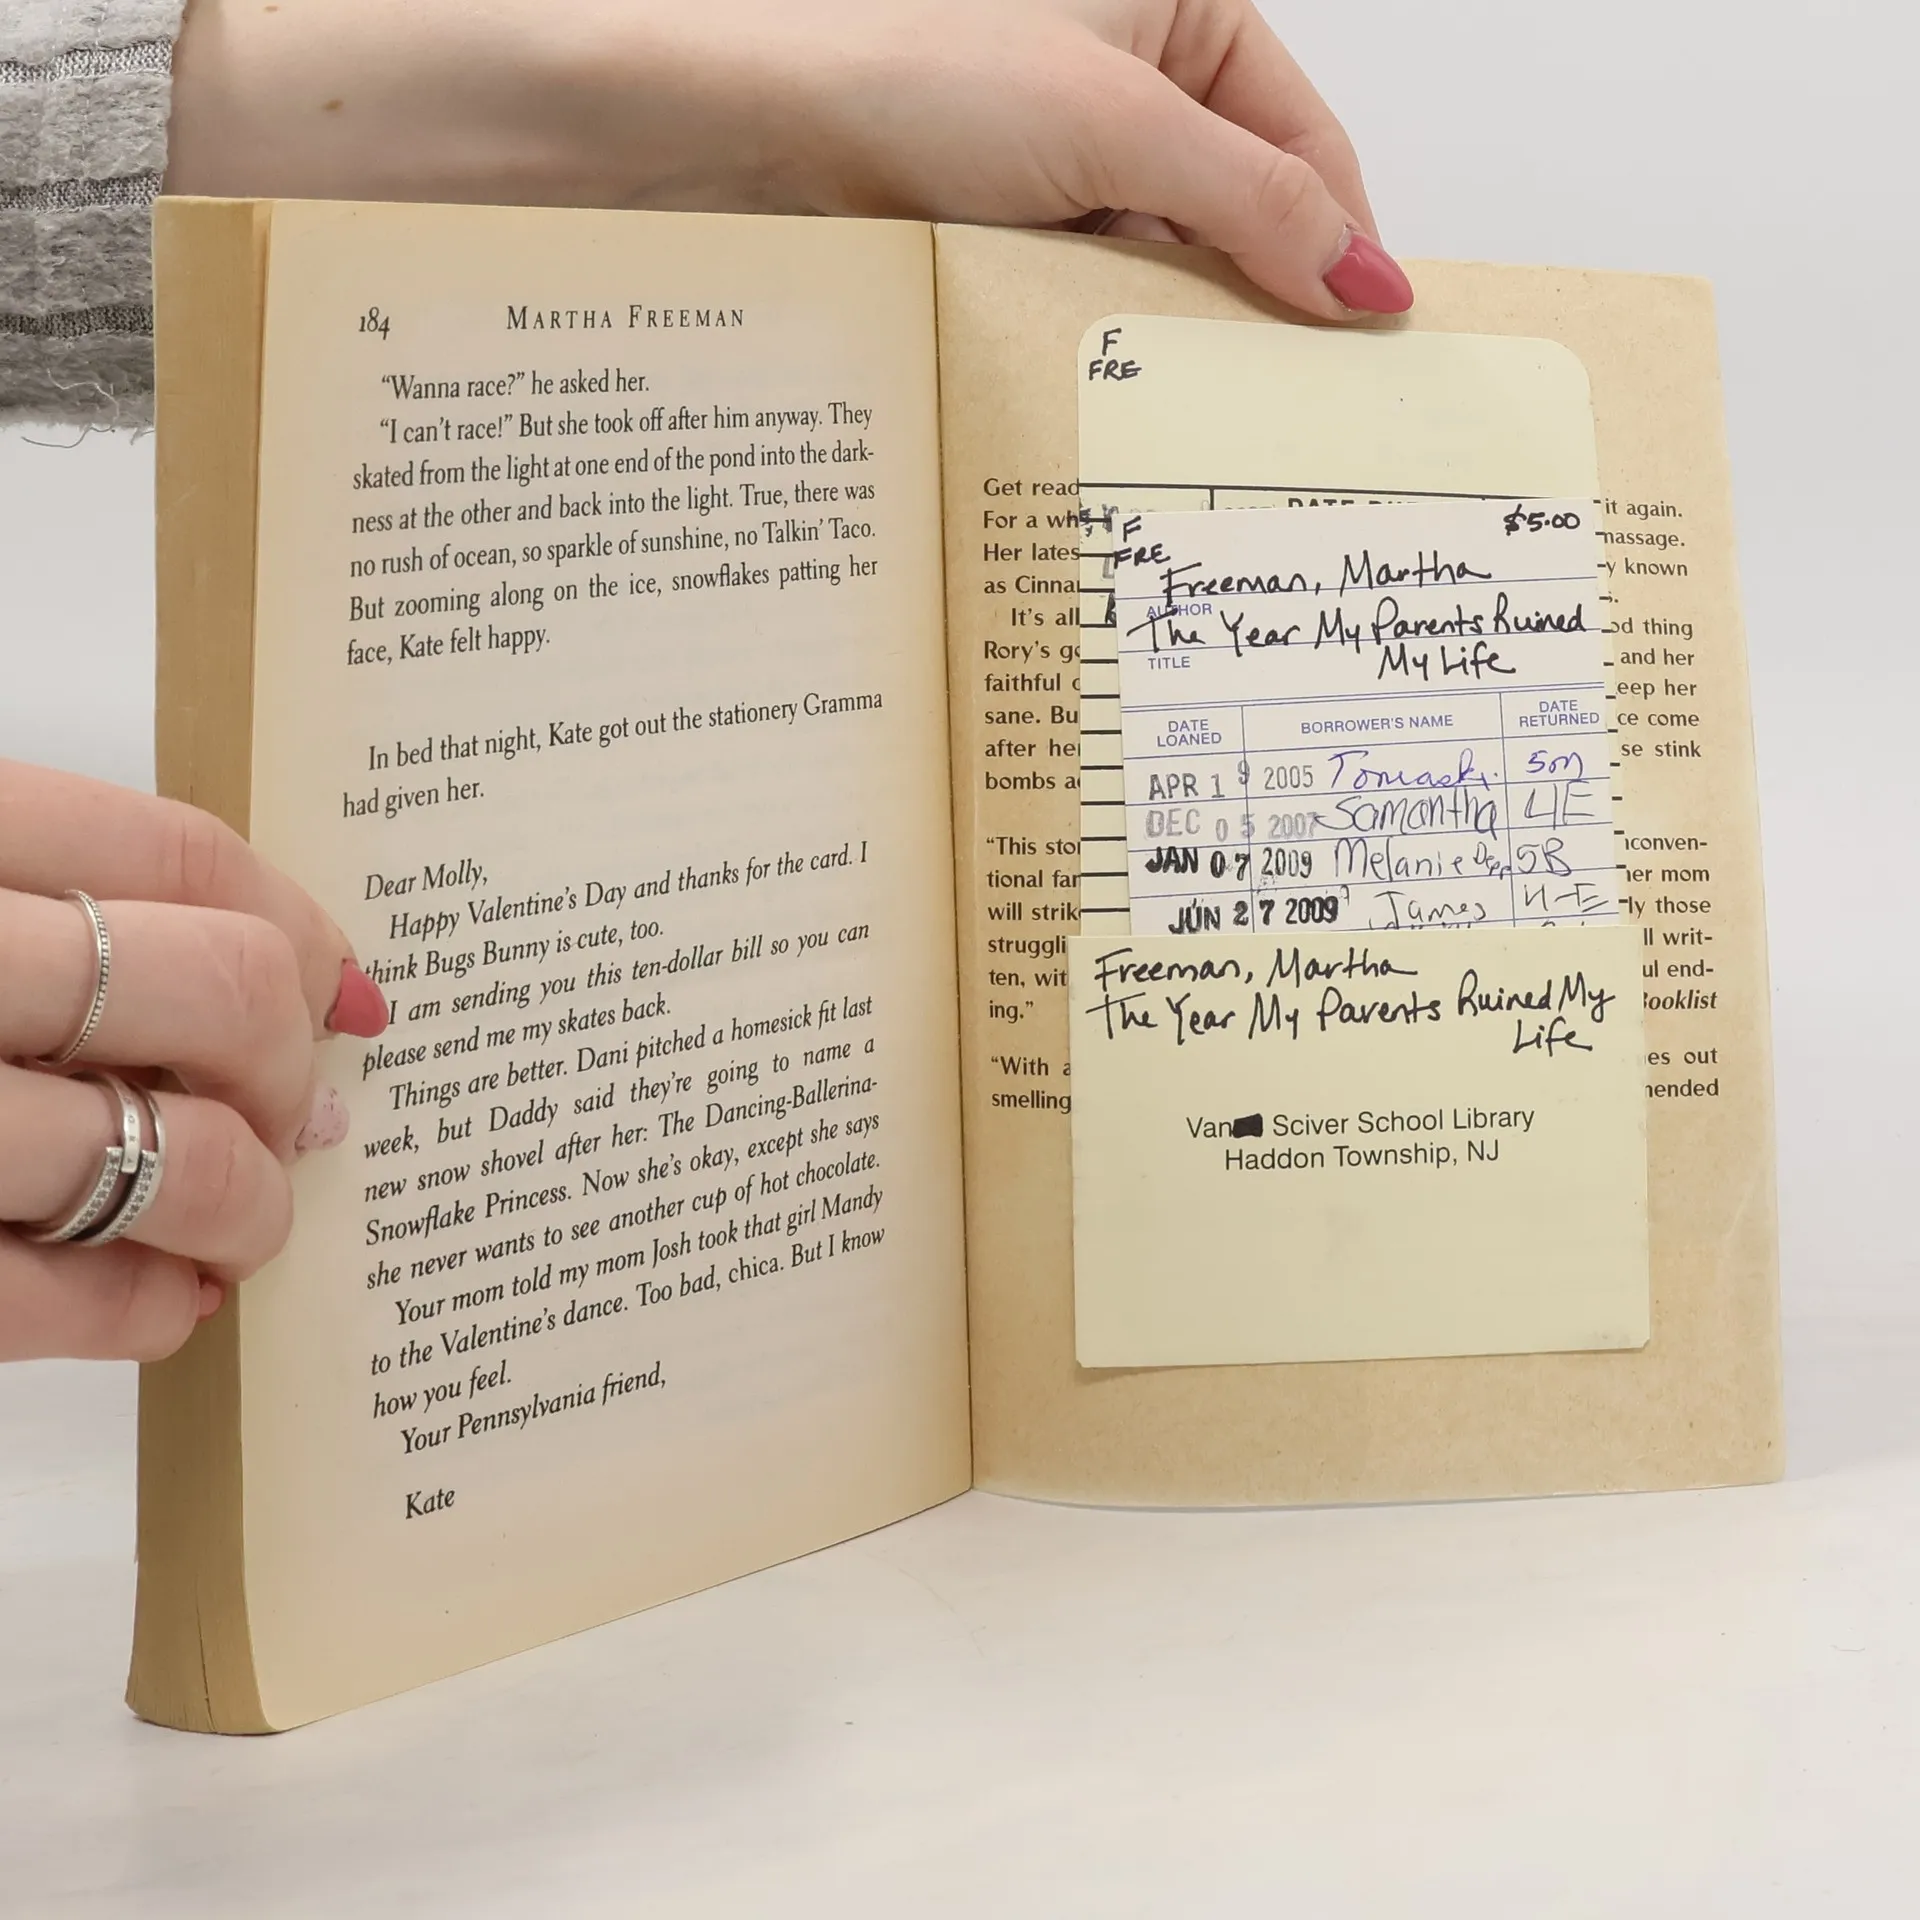 184 MARTHA FREEMAN
“Wanna race?” he asked her.
“I can’t race!” But she took off after him anyway. They
skated from the light at one end of the pond into the dark-
ness at the other and back into the light. True, there was
no rush of ocean, so sparkle of sunshine, no Talkin’ Taco.
But zooming along on the ice, snowflakes patting her
face, Kate felt happy.
In bed that night, Kate got out the stationery Gramma
had given her.
Dear Molly,
Happy Valentine’s Day and thanks for the card. I
think Bugs Bunny is cute, too.
I am sending you this ten-dollar bill so you can
please send me my skates back.
Things are better. Dani pitched a homesick fit last
week, but Daddy said they’re going to name a
new snow shovel after her: The Dancing-Ballerina-
Snowflake Princess. Now she’s okay, except she says
she never wants to see another cup of hot chocolate.
Your mom told my mom Josh took that girl Mandy
to the Valentine’s dance. Too bad, chica. But I know
how you feel.
Your Pennsylvania friend,
Kate
F
FRE
Get read
it again.
For a wh
massage.
Her lates
y known
as Cinna
It’s all
od thing
Rory’s g
and her
faithful
eep her
sane. Bu
ce come
after he
se stink
bombs a
“This sto
nconven-
tional far
her mom
will strik
ly those
struggli
ll writ-
ten, wit
ul end-
ing.”
Booklist
“With a
es out
smelling
mended
F
FRE
$5.00
Freeman, Martha
AUTHOR
The Year My Parents Ruined
My Life
TITLE
DATE LOANED BORROWER’S NAME DATE RETURNED
APR 19 2005 Tomaski 5M
DEC 05 2007 Samantha 4E
JAN 07 2009 Melanie 5B
JUN 27 2009 James 4-E
Freeman, Martha
The Year My Parents Ruined My
Life
Van Sciver School Library
Haddon Township, NJ